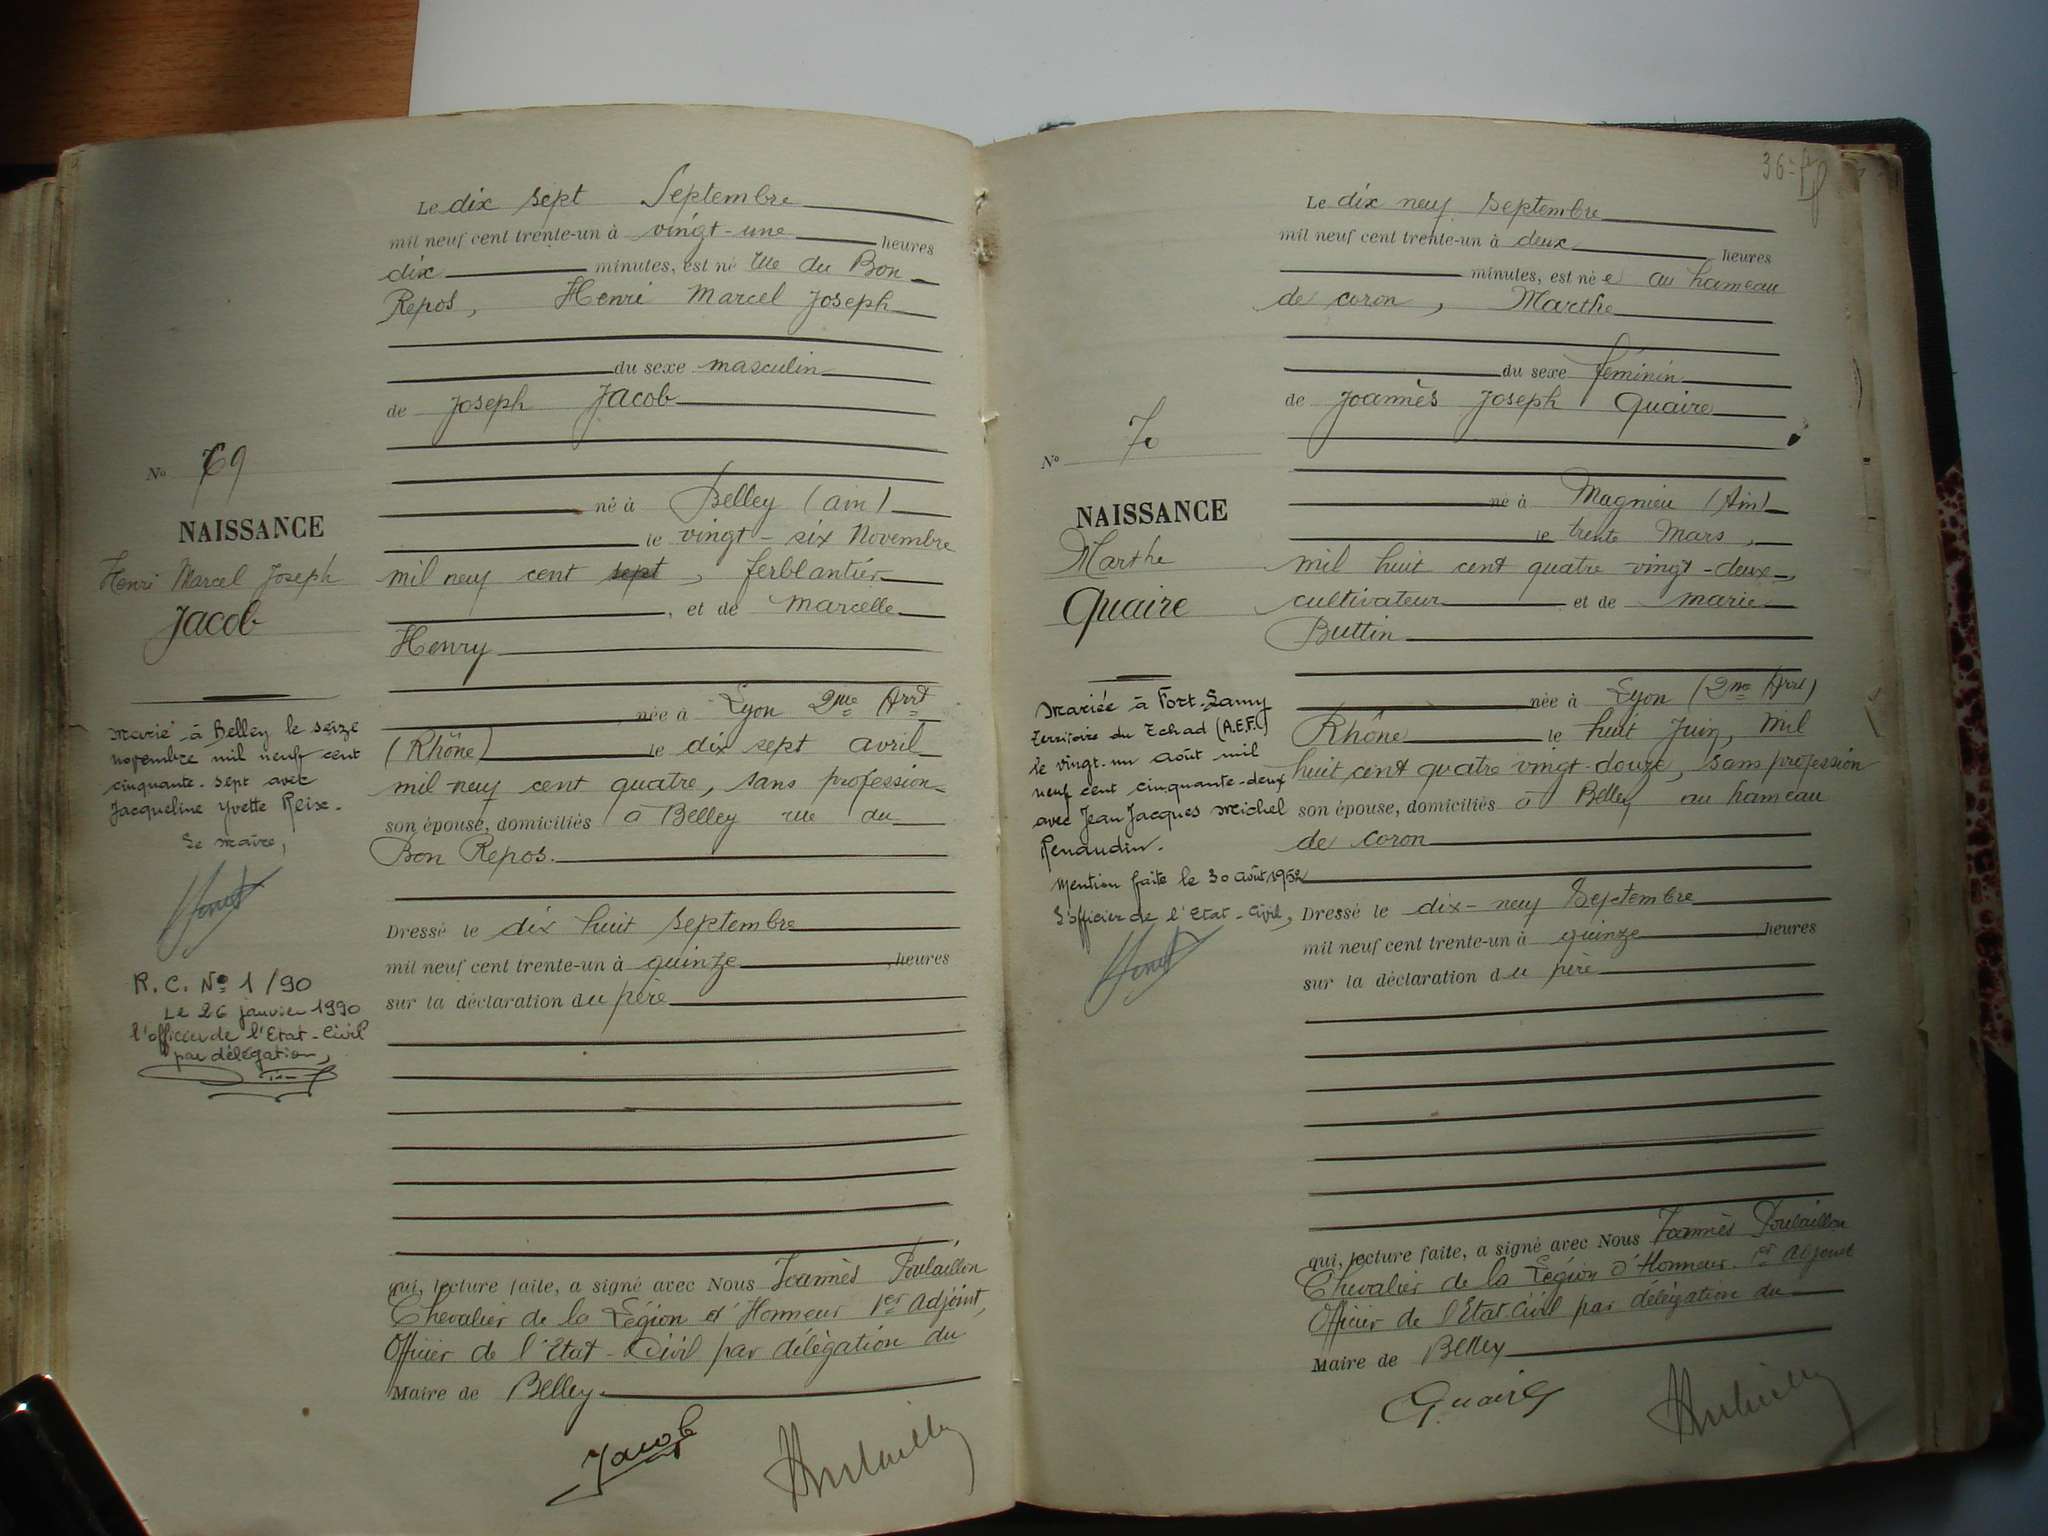 Le dix sept Septembre
mil neuf cent trente-un à vingt-une heures
dix minutes, est né rue du Bon
Repos, Henri Marcel Joseph
du sexe masculin
de Joseph Jacob
né à Belley (ain)
le vingt-six Novembre
mil neuf cent sept, ferblantier
, et de Marcelle
Henry
née à Lyon 2me Arrt
(Rhône) le dix sept avril
mil neuf cent quatre, sans profession
son épouse, domiciliés à Belley rue du
Bon Repos.
Dressé le dix huit septembre
mil neuf cent trente-un à quinze, heures
sur la déclaration du père
qui, lecture faite, a signé avec Nous Joannès Poulaillon
Chevalier de la Légion d'Honneur 1er Adjoint,
Officier de l'Etat-Civil par délégation du
Maire de Belley.
Jacob
No 69
NAISSANCE
Henri Marcel Joseph
Jacob
Marié à Belley le seize
novembre mil neuf cent
cinquante-sept avec
Jacqueline Yvette Reix.
Le Maire,
R.C. No 1/90
Le 26 janvier 1990
l'officier de l'Etat-Civil
par délégation,
36
Le dix neuf septembre
mil neuf cent trente-un à deux heures
minutes, est née au hameau
de coron, Marthe
du sexe féminin
de Joannès Joseph Quaire
né à Magnieu (Ain)
le trente Mars,
mil huit cent quatre vingt-deux,
cultivateur et de Marie
Buttin
née à Lyon (2me Arrt)
Rhône le huit Juin, mil
huit cent quatre vingt-douze, sans profession
son épouse, domiciliés à Belley au hameau
de coron
Dressé le dix-neuf Septembre
mil neuf cent trente-un à quinze, heures
sur la déclaration du père
qui, lecture faite, a signé avec Nous Joannès Poulaillon
Chevalier de la Légion d'Honneur 1er Adjoint
Officier de l'Etat-Civil par délégation du
Maire de Belley
Quaire
No 70
NAISSANCE
Marthe
Quaire
Mariée à Fort-Lamy
territoire du Tchad (A.E.F.)
le vingt-un août mil
neuf cent cinquante-deux
avec Jean Jacques Michel
Renaudin.
Mention faite le 30 août 1952
L'officier de l'Etat-Civil,